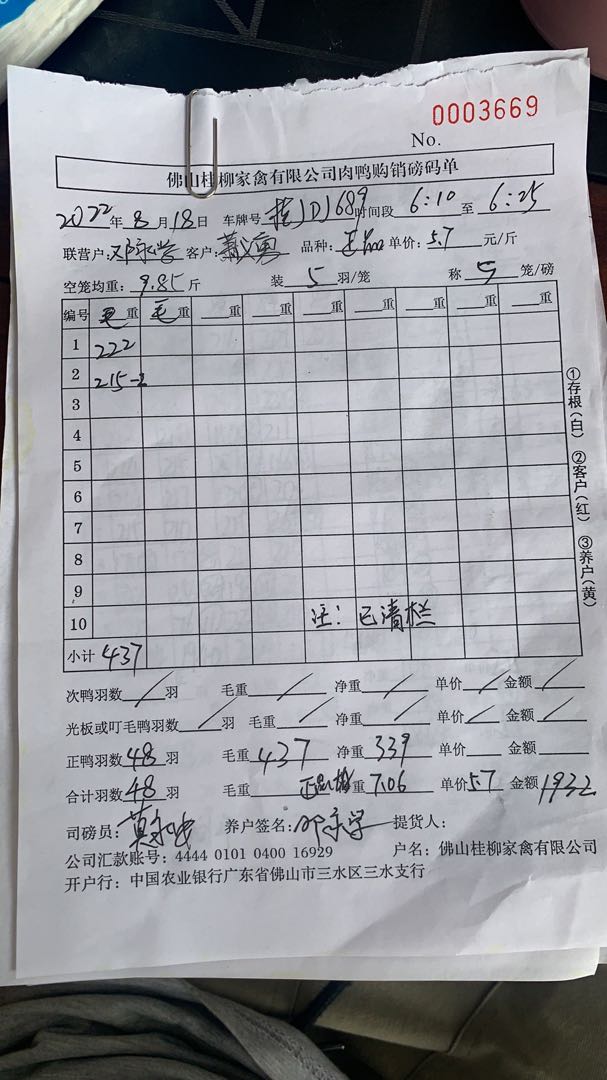 0003669
No.
佛山桂柳家禽有限公司肉鸭购销磅码单
2022年8月18日 车牌号 JDJ689 时间段 6:10 至 6:25
联营户: 邓永学 客户: 品种: 单价: 5.7 元/斤
空笼均重: 9.85 斤 装 5 羽/笼 称 5 笼/磅
编号 毛重 毛重 重 重 重 重 重 重 重
1 222
2 215-2
3
4
5
6
7
8
9
10 注: 已清栏
小计 437
次鸭羽数 / 羽 毛重 / 净重 / 单价 / 金额 /
光板或叮毛鸭羽数 / 羽 毛重 / 净重 / 单价 / 金额 /
正鸭羽数 48 羽 毛重 437 净重 339 单价 金额
合计羽数 48 羽 毛重 重 7.06 单价 5.7 金额 1932
司磅员: 养户签名: 邓永学 提货人:
公司汇款账号: 4444 0101 0400 16929 户名: 佛山桂柳家禽有限公司
开户行: 中国农业银行广东省佛山市三水区三水支行
①存根(白) ②客户(红) ③养户(黄)